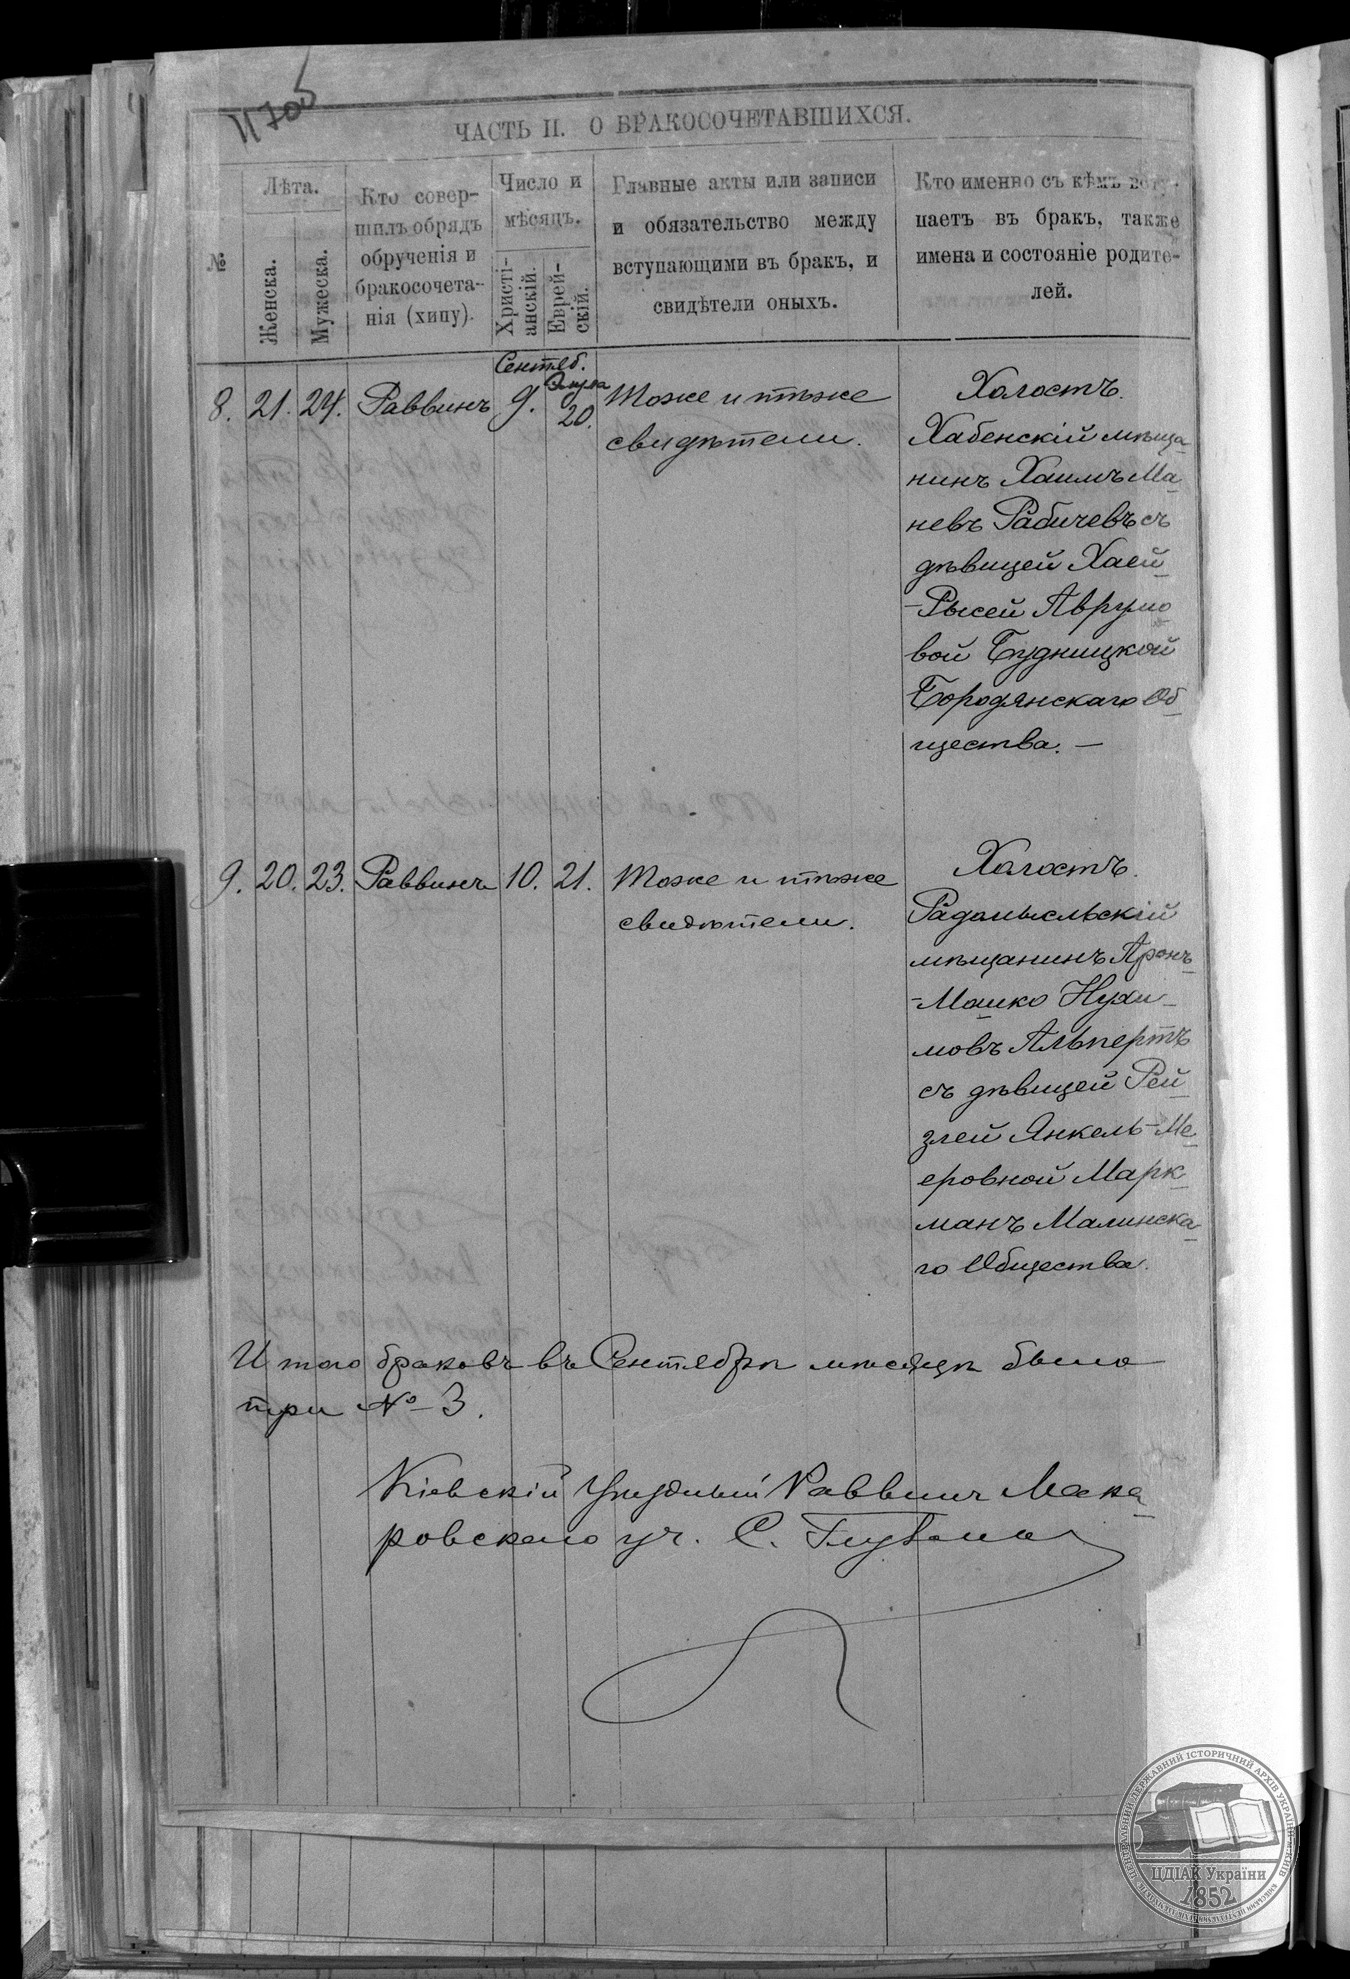 ЧАСТЬ II. О БРАКОСОЧЕТАВШИХСЯ.
№
Лѣта.
Женска.
Мужеска.
Кто совер-
шилъ обрядъ
обрученія и
бракосочета-
нія (хипу).
Число и
мѣсяцъ.
Христі-
анскій.
Еврей-
скій.
Главные акты или записи
и обязательство между
вступающими въ бракъ, и
свидѣтели оныхъ.
Кто именно съ кѣмъ всту-
паетъ въ бракъ, также
имена и состояніе родите-
лей.
Сентяб.
Элула
8. 21. 24. Раввинъ 9. 20. Тоже и тѣже
свидѣтели.
Холостъ.
Хабенскій мѣща
нинъ Хаимъ Ма
невъ Рабичевъ съ
дѣвицей Хаей
-Рысей Аврумо
вой Будницкой
Бородянскаго Об
щества. —
9. 20. 23. Раввинъ 10. 21. Тоже и тѣже
свидѣтели.
Холостъ.
Радомысльскій
мѣщанинъ Аронъ
-Мошко Нухи
мовъ Альпертъ
съ дѣвицей Рей
злей Янкель-Ме
еровной Марк
манъ Малинска
го Общества.
Итого браковъ въ Сентябрѣ мѣсяцѣ было
три № 3.
Кіевскій Уѣздный Раввинъ Мака
ровскаго уч. С.
ЦЕНТРАЛЬНИЙ ДЕРЖАВНИЙ ІСТОРИЧНИЙ АРХІВ УКРАЇНИ, М.КИЇВ
ЦДІАК України
1852